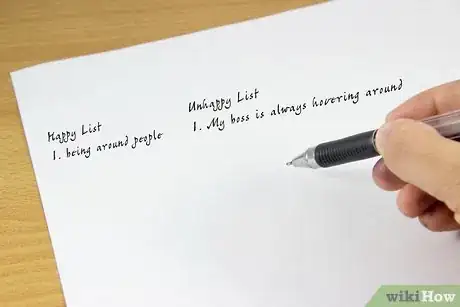 Happy List
1. being around people
Unhappy List
1. My boss is always hovering around
wikiHow